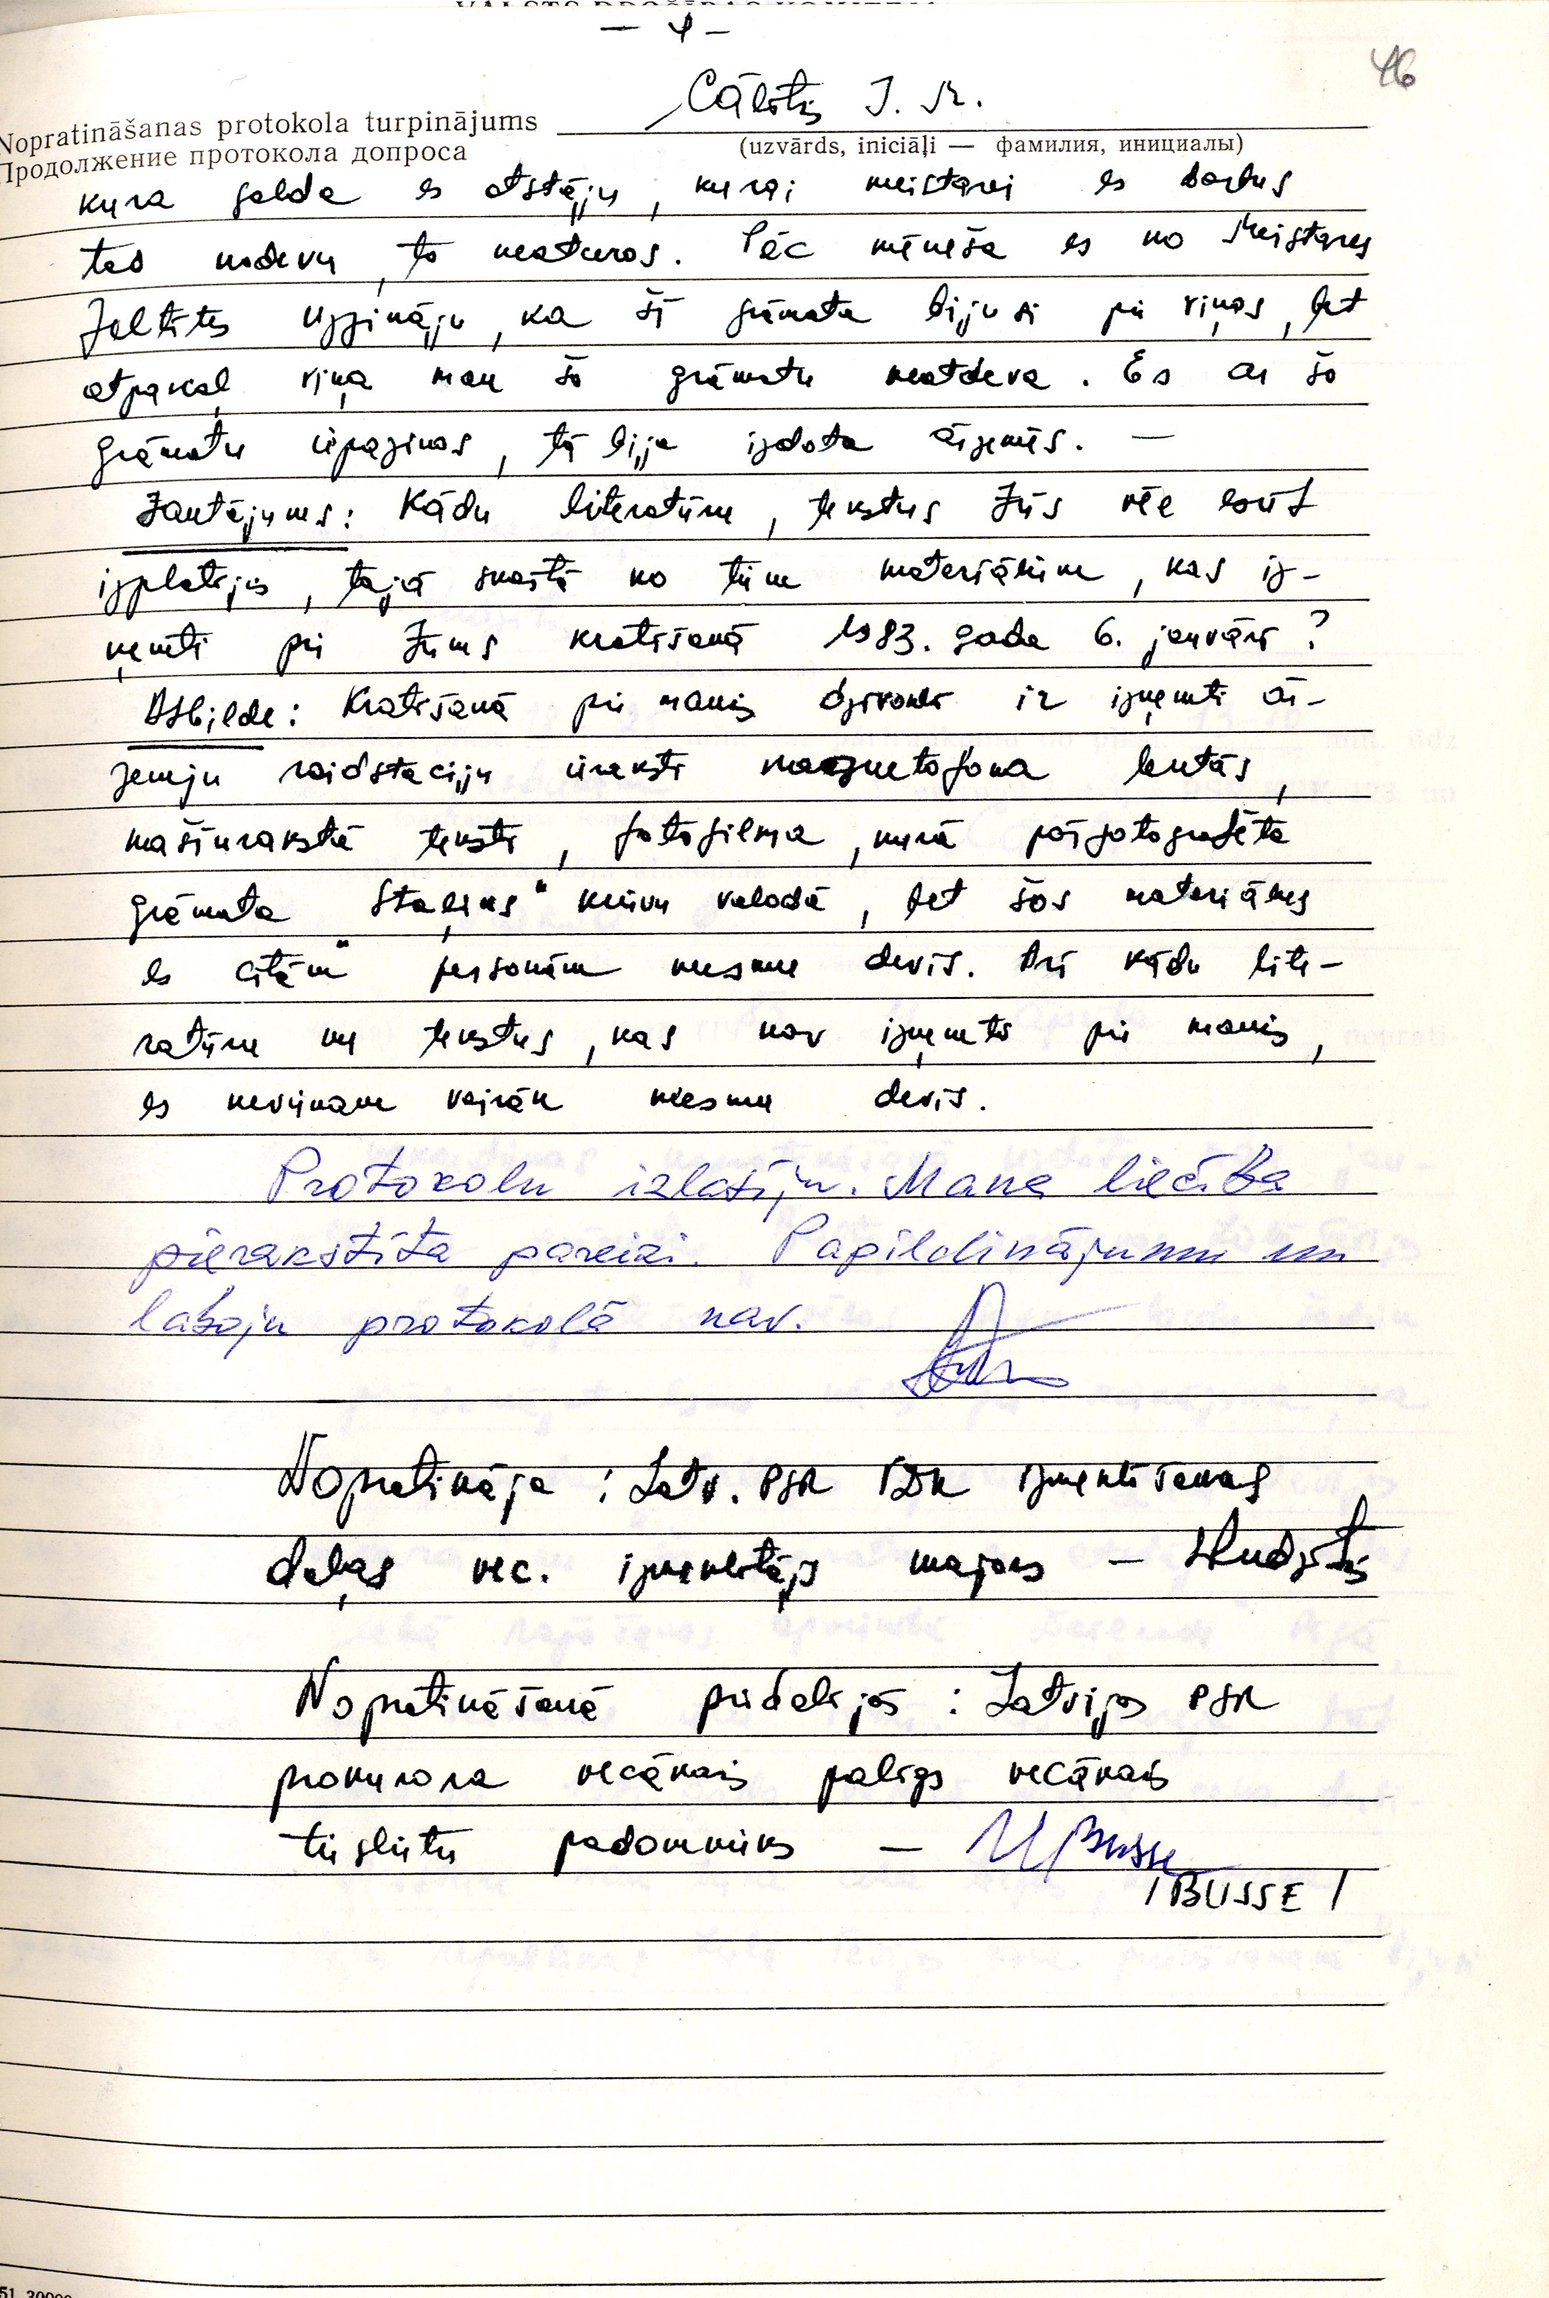 — 4 —
46
Cālītis I. K.
Nopratināšanas protokola turpinājums
Продолжение протокола допроса
(uzvārds, iniciāļi — фамилия, инициалы)
kura galda es atstāju, kurai meistarei es darbus
tad nodevu, to neatceros. Pēc mēneša es no meistares
Zeltītes uzzināju, ka šī grāmata bijusi pie viņas, bet
atpakaļ viņa man šo grāmatu neatdeva. Es ar šo
grāmatu iepazinos, tā bija izdota ārzemēs. —
Jautājums: Kādu literatūru, tekstus Jūs vēl esiet
izplatījis, tajā skaitā no tiem materiāliem, kas iz-
ņemti pie Jums kratīšanā 1983. gada 6. janvārī?
Atbilde: Kratīšanā pie manis dzīvoklī ir izņemti ār-
zemju raidstaciju ieraksti magnetofona lentās,
mašīnrakstā teksti, fotofilma, kurā pārfotografēta
grāmata „Staļins" krievu valodā, bet šos materiālus
es citām personām neesmu devis. Arī kādu lite-
ratūru vai tekstus, kas nav izņemti pie manis,
es nevienam vairāk neesmu devis.
Protokolu izlasīju. Mana liecība
pierakstīta pareizi. Papildinājumu un
laboju protokolā nav.
Nopratināja: Latv. PSR VDK izmeklēšanas
daļas vec. izmeklētājs majors —
Nopratināšanā piedalījās: Latvijas PSR
prokurora vecākais palīgs vecākais
tieslietu padomnieks — Busse
/BUSSE/